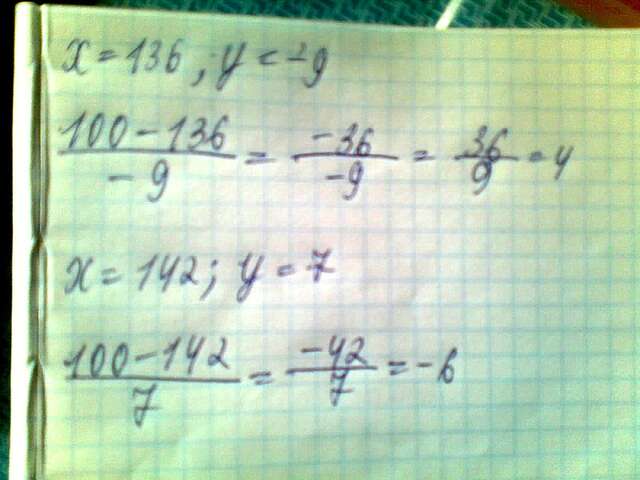 x = 136 ; y = -9
100 - 136 / - 9 = -36 / -9 = 36 / 9 = 4
x = 142 ; y = 7
100 - 142 / 7 = -42 / 7 = -6